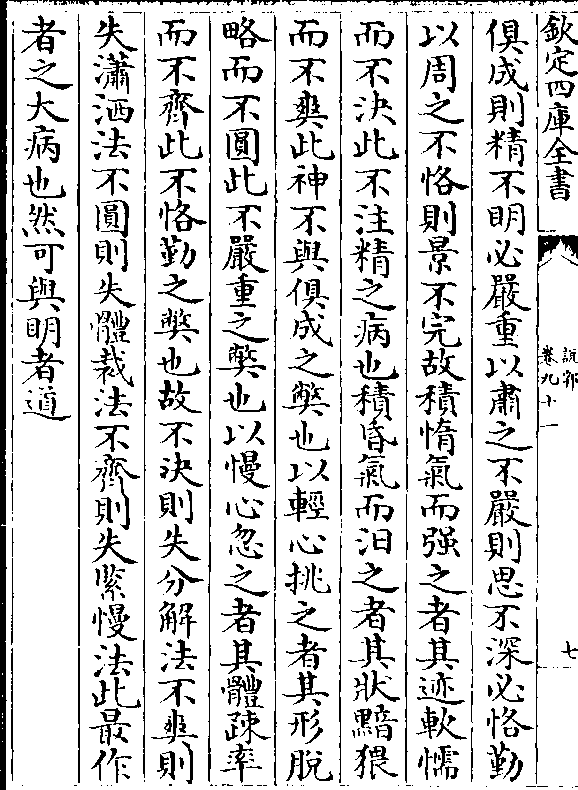 欽定四庫全書
說郛
卷九十一
七
俱成則精不明必嚴重以肅之不嚴則思不深必恪勤
以周之不恪則景不完故積惰氣而强之者其迹軟懦
而不決此不注精之病也積昏氣而汩之者其狀黯猥
而不爽此神不與俱成之弊也以輕心挑之者其形脫
略而不圓此不嚴重之弊也以慢心忽之者其體疎率
而不齊此不恪勤之弊也故不決則失分解法不爽則
失瀟洒法不圓則失體裁法不齊則失緊慢法此最作
者之大病也然可與明者道